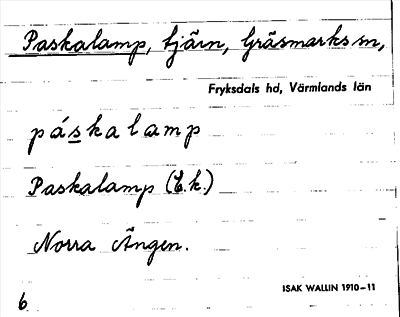 Paskalamp, tjärn, Gräsmarks sn,
Fryksdals hd, Värmlands län
páskalamp
Paskalamp (E.k.)
Norra Ängen.
ISAK WALLIN 1910–11
6